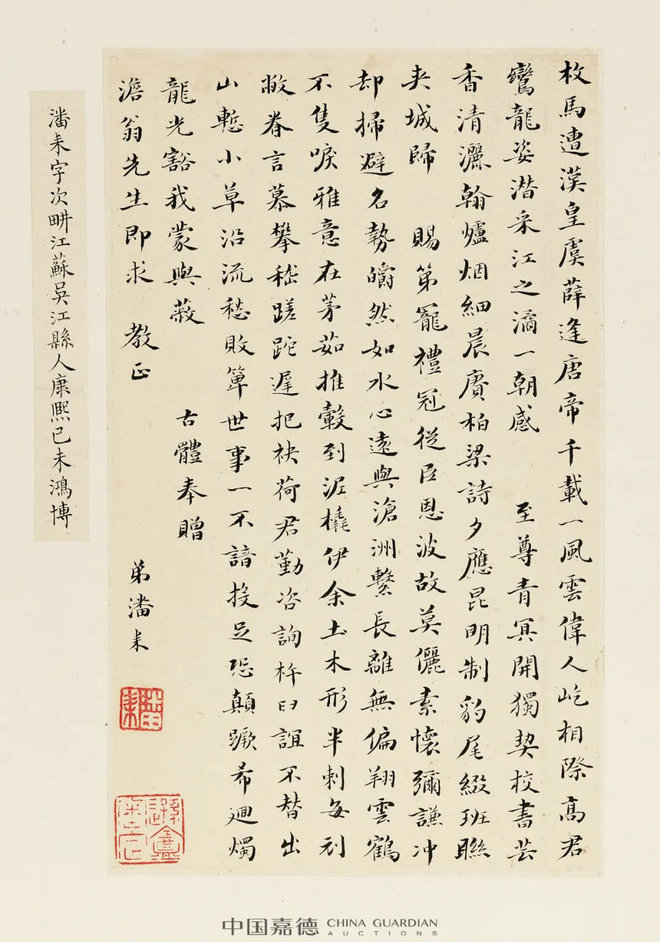 枚馬遭漢皇虞薛逢唐帝千載一風雲偉人屹相際高君
鸞龍姿潛采江之濆一朝感　至尊青冥開獨契校書芸
香清灑翰爐烟細晨賡柏梁詩夕應昆明制豹尾綴班聯
夾城歸　賜第寵禮冠從臣恩波故莫儷素懷彌謙冲
却掃避名勢皭然如水心遠與滄洲繫長離無偏翔雲鶴
不隻唳雅意在茅茹推轂到泥橇伊余土木形半刺每刓
敝眷言慕攀嵇蹉跎遲把袂荷君勤咨詢杵臼詎不替出
山慙小草沿流愁敗箄世事一不諳投足恐顛蹶希迴燭
龍光豁我蒙與蔽　古體奉贈
澹翁先生即求　教正　弟潘耒
潘耒字次畊江蘇吳江縣人康熙己未鴻博
中国嘉德 CHINA GUARDIAN
AUCTIONS